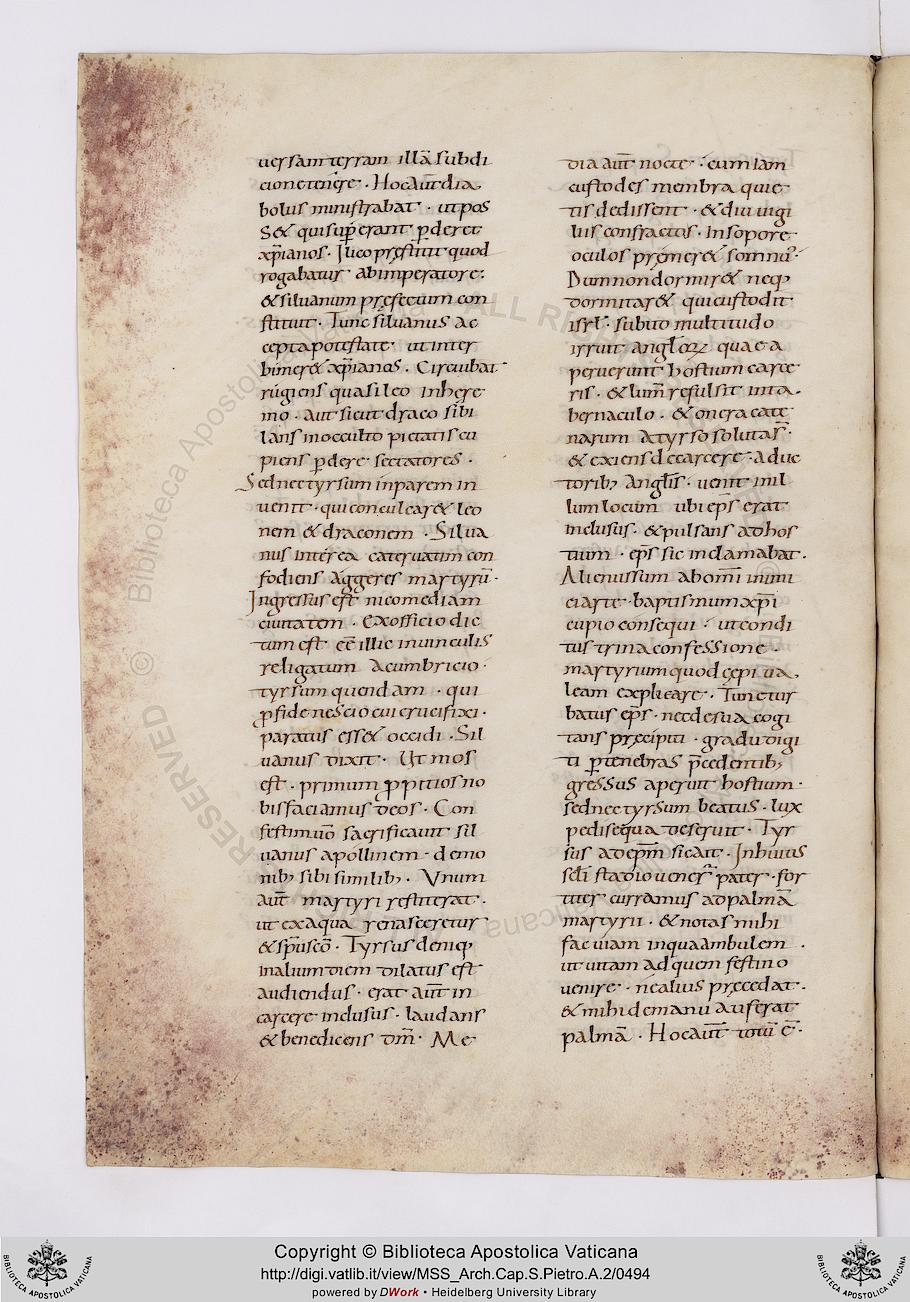 uersam terram illā subdi
cione tenere · Hoc aūt dia
bolus ministrabat · ut pos
s& quis uꝑerant ꝑderet
xp̄ianos · Ilico prestitit quod
rogabatur ab imperatore:
& siluanum prefectum con
stituit · Tunc siluanus ac
cepta potestate ut inter
bimer& xp̄ianos · Circuibat
rugiens quasi leo in here
mo · aut sicut draco sibi
lans in occulto pietatis cu
piens ꝑdere sectatores ·
Sed nec tyrsum inparem in
uenit · qui conculcar& leo
nem & draconem · Silua
nus interea cateruatim con
fodiens aggeres martyrū ·
Ingressus est nicomediam
ciuitatem · Ex officio dic
tum est eē illic in uinculis
religatum a cumbricio ·
tyrsum quendam · qui
ꝓ fide nescio cui crucifixi ·
paratus ess& occidi · Sil
uanus dixit · Ut mos
est · primum ꝓpitios no
bis faciamus deos · Con
festim uō sacrificauit sil
uanus apollinem demo
nib; sibi similib; · Unum
aūt martyri restiterat ·
ut ex aqua renasceretur
& sp̄u sc̄o · Tyrsus deniq;
in alium diem dilatus est
audiendus · erat aūt in
carcere inclusus · laudans
& benedicens dm̄ · Me
dia aūt nocte · cum iam
custodes membra quie
tis dedissent · & diu uigi
liis confractos · in sopore
oculos premer& somnū ·
Dum non dormir& neq;
dormitar& qui custodit
isrl̄ · subito multitudo
irruit anglōꝝ quae a
peruerunt hostium carce
ris · & lum̄ refulsit in ta
bernaculo · & onera cate
narum a tyrso soluta s̄ ·
& exiens de carcere · aduc
torib; angl̄is · uenit in il
lum locum ubi ep̄s erat
inclusus · & pulsans ad hos
tium · ep̄s sic inclamabat ·
Alienus sum ab om̄i inimi
ci arte · baptismum xp̄i
cupio consequi · ut condi
tus trina confessione ·
martyrium quod cepi ua
leam explicare · Tunc tur
batus ep̄s · nec de sua cogi
tans precipiti · gradu digi
ti ꝑ tenebras p̄cedentib;
gressus aperuit hostium ·
sed nec tyrsum beatus · lux
pedisequa deseruit · Tyr
sus ad ep̄m sic ait · In huius
scl̄i stadio uener̄ pater · for
titer curramus ad palmā
martyrii · & notas mihi
fac uiam in qua ambulem ·
ut uitam ad quem festino
uenire · ne alius precedat ·
& mihi de manu auferat
palmā · Hoc aūt totū ē ·
Copyright © Biblioteca Apostolica Vaticana
http://digi.vatlib.it/view/MSS_Arch.Cap.S.Pietro.A.2/0494
powered by DWork • Heidelberg University Library